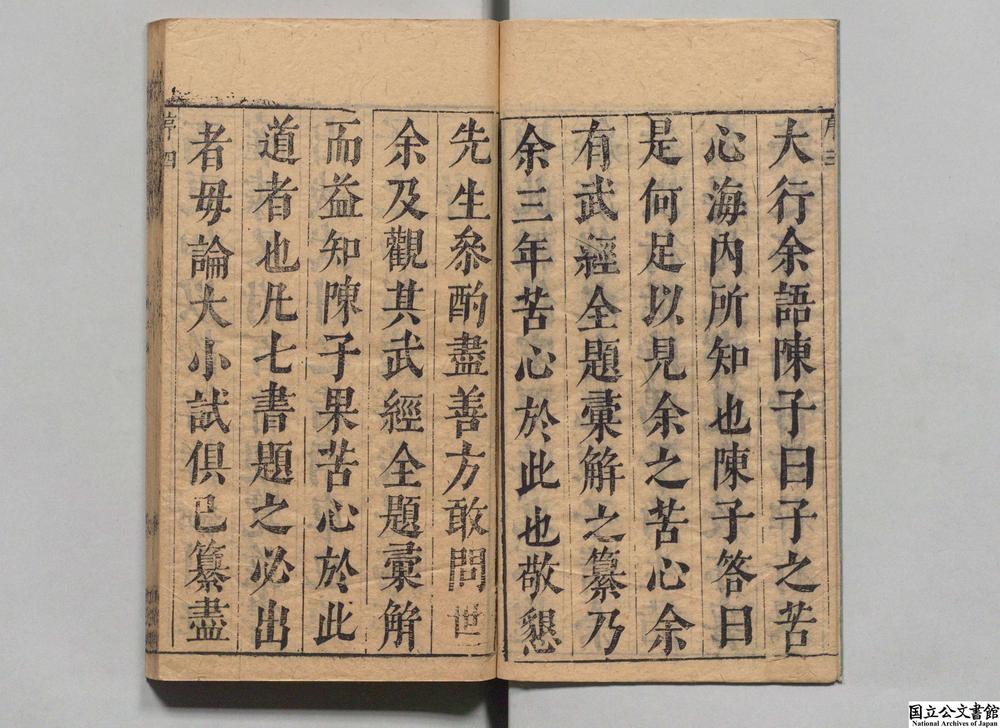 大行余語陳子曰子之苦
心海內所知也陳子答曰
是何足以見余之苦心余
有武經全題彙解之纂乃
余三年苦心於此也敬懇
先生叅酌盡善方敢問世
余及觀其武經全題彙解
而益知陳子果苦心於此
道者也凡七書題之必出
者毋論大小試俱已纂盡
序三
序四
国立公文書館
National Archives of Japan